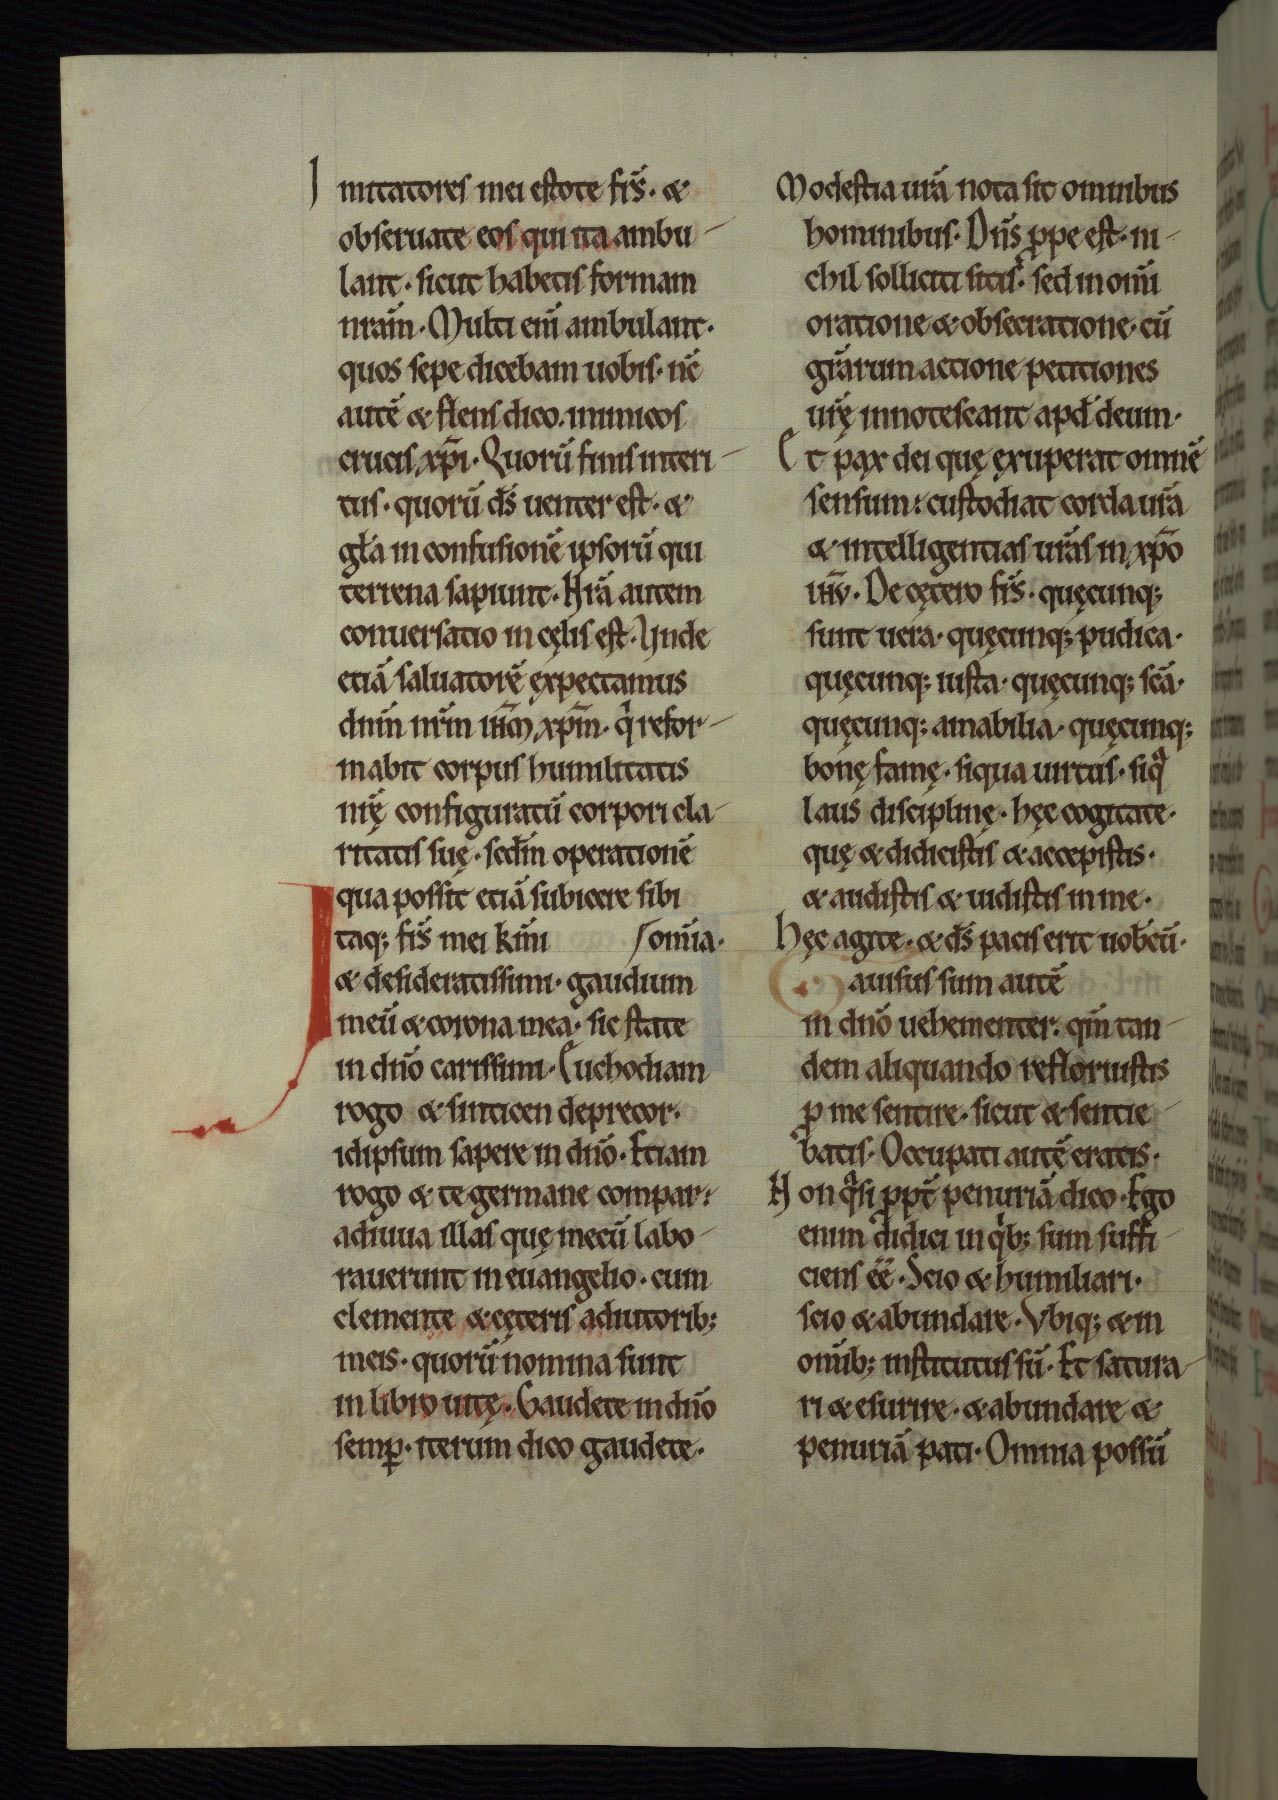 Imitatores mei estote fr̄s. &
obseruate eos qui ita ambu-
lant. sicut habetis formam
nrām. Multi eni̅ ambulant.
quos sepe dicebam uobis. nc̄
aute̅ & flens dico. inimicos
crucis xp̄i. Quoru̅ finis interi-
tus. quoru̅ ds̄ uenter est. &
gl̄a in confusione̅ ipsoru̅ qui
terrena sapiunt. Nrā autem
conuersatio in cęlis est. Unde
etia̅ saluatore̅ expectamus
dnm̄ nrm̄ ihm̄ xpm̄. qͥ refor-
mabit corpus humilitatis
nrę̄ configuratu̅ corpori cla-
ritatis suę. scd̄m operatione̅
qua possit etia̅ subicere sibi
Itaq; fr̄s mei kmi̅ omīa.
& desideratissimi. gaudium
meu̅ & corona mea. sic state
in dn̄o carissimi. Euchodiam
rogo & sinticen deprecor.
idipsum sapere in dn̄o. Etiam
rogo & te germane compar:
adiuua illas quę mecu̅ labo-
rauerunt in euangelio. cum
clemente & cęteris adiutorib;
meis. quoru̅ nomina sunt
in libro uitę. Gaudete in dn̄o
semp̱. iterum dico gaudete.
Modestia urā nota sit omnibus
hominibus. Dn̄s ꝓpe est. ni-
chil solliciti sitis. sed in om̄i
oratione & obsecratione. cu̅
grārum actione petitiones
urę̄ innotescant apd̄ deum.
Et pax dei quę exuperat omne̅
sensum: custodiat corda urā
& intelligentias urās in xp̄o
ih̄u. De cętero fr̄s. quęcunq;
sunt uera. quęcunq; pudica.
quęcunq; iusta. quęcunq; scā.
quęcunq; amabilia. quęcunq;
bonę famę. siqua uirtus. siqͣ
laus disciplinę. hęc cogitate.
quę & didicistis & accepistis.
& audistis & uidistis in me.
Hęc agite. & ds̄ pacis erit uob̄cu̅.
Gauisus sum aute̅
in dn̄o uehementer. qm̄ tan-
dem aliquando refloruistis
ꝑ me sentire. sicut & sentie-
batis. Occupati aute̅ eratis.
Non qͣsi ꝓpt̄ penuria̅ dico. Ego
enim didici in qͥb; sum suffi-
ciens ēē. Scio & humiliari.
scio & abundare. Vbiq; & in
omīb; institutus su̅. Et satura-
ri & esurire. & abundare &
penuria̅ pati. Omnia possu̅